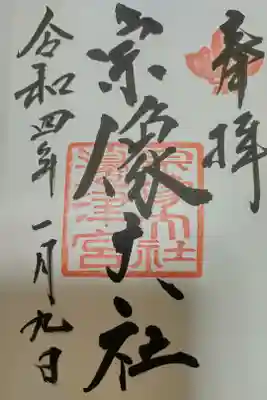 奉拝
宗像大社
宗像大社
邊津宮
令和四年一月九日